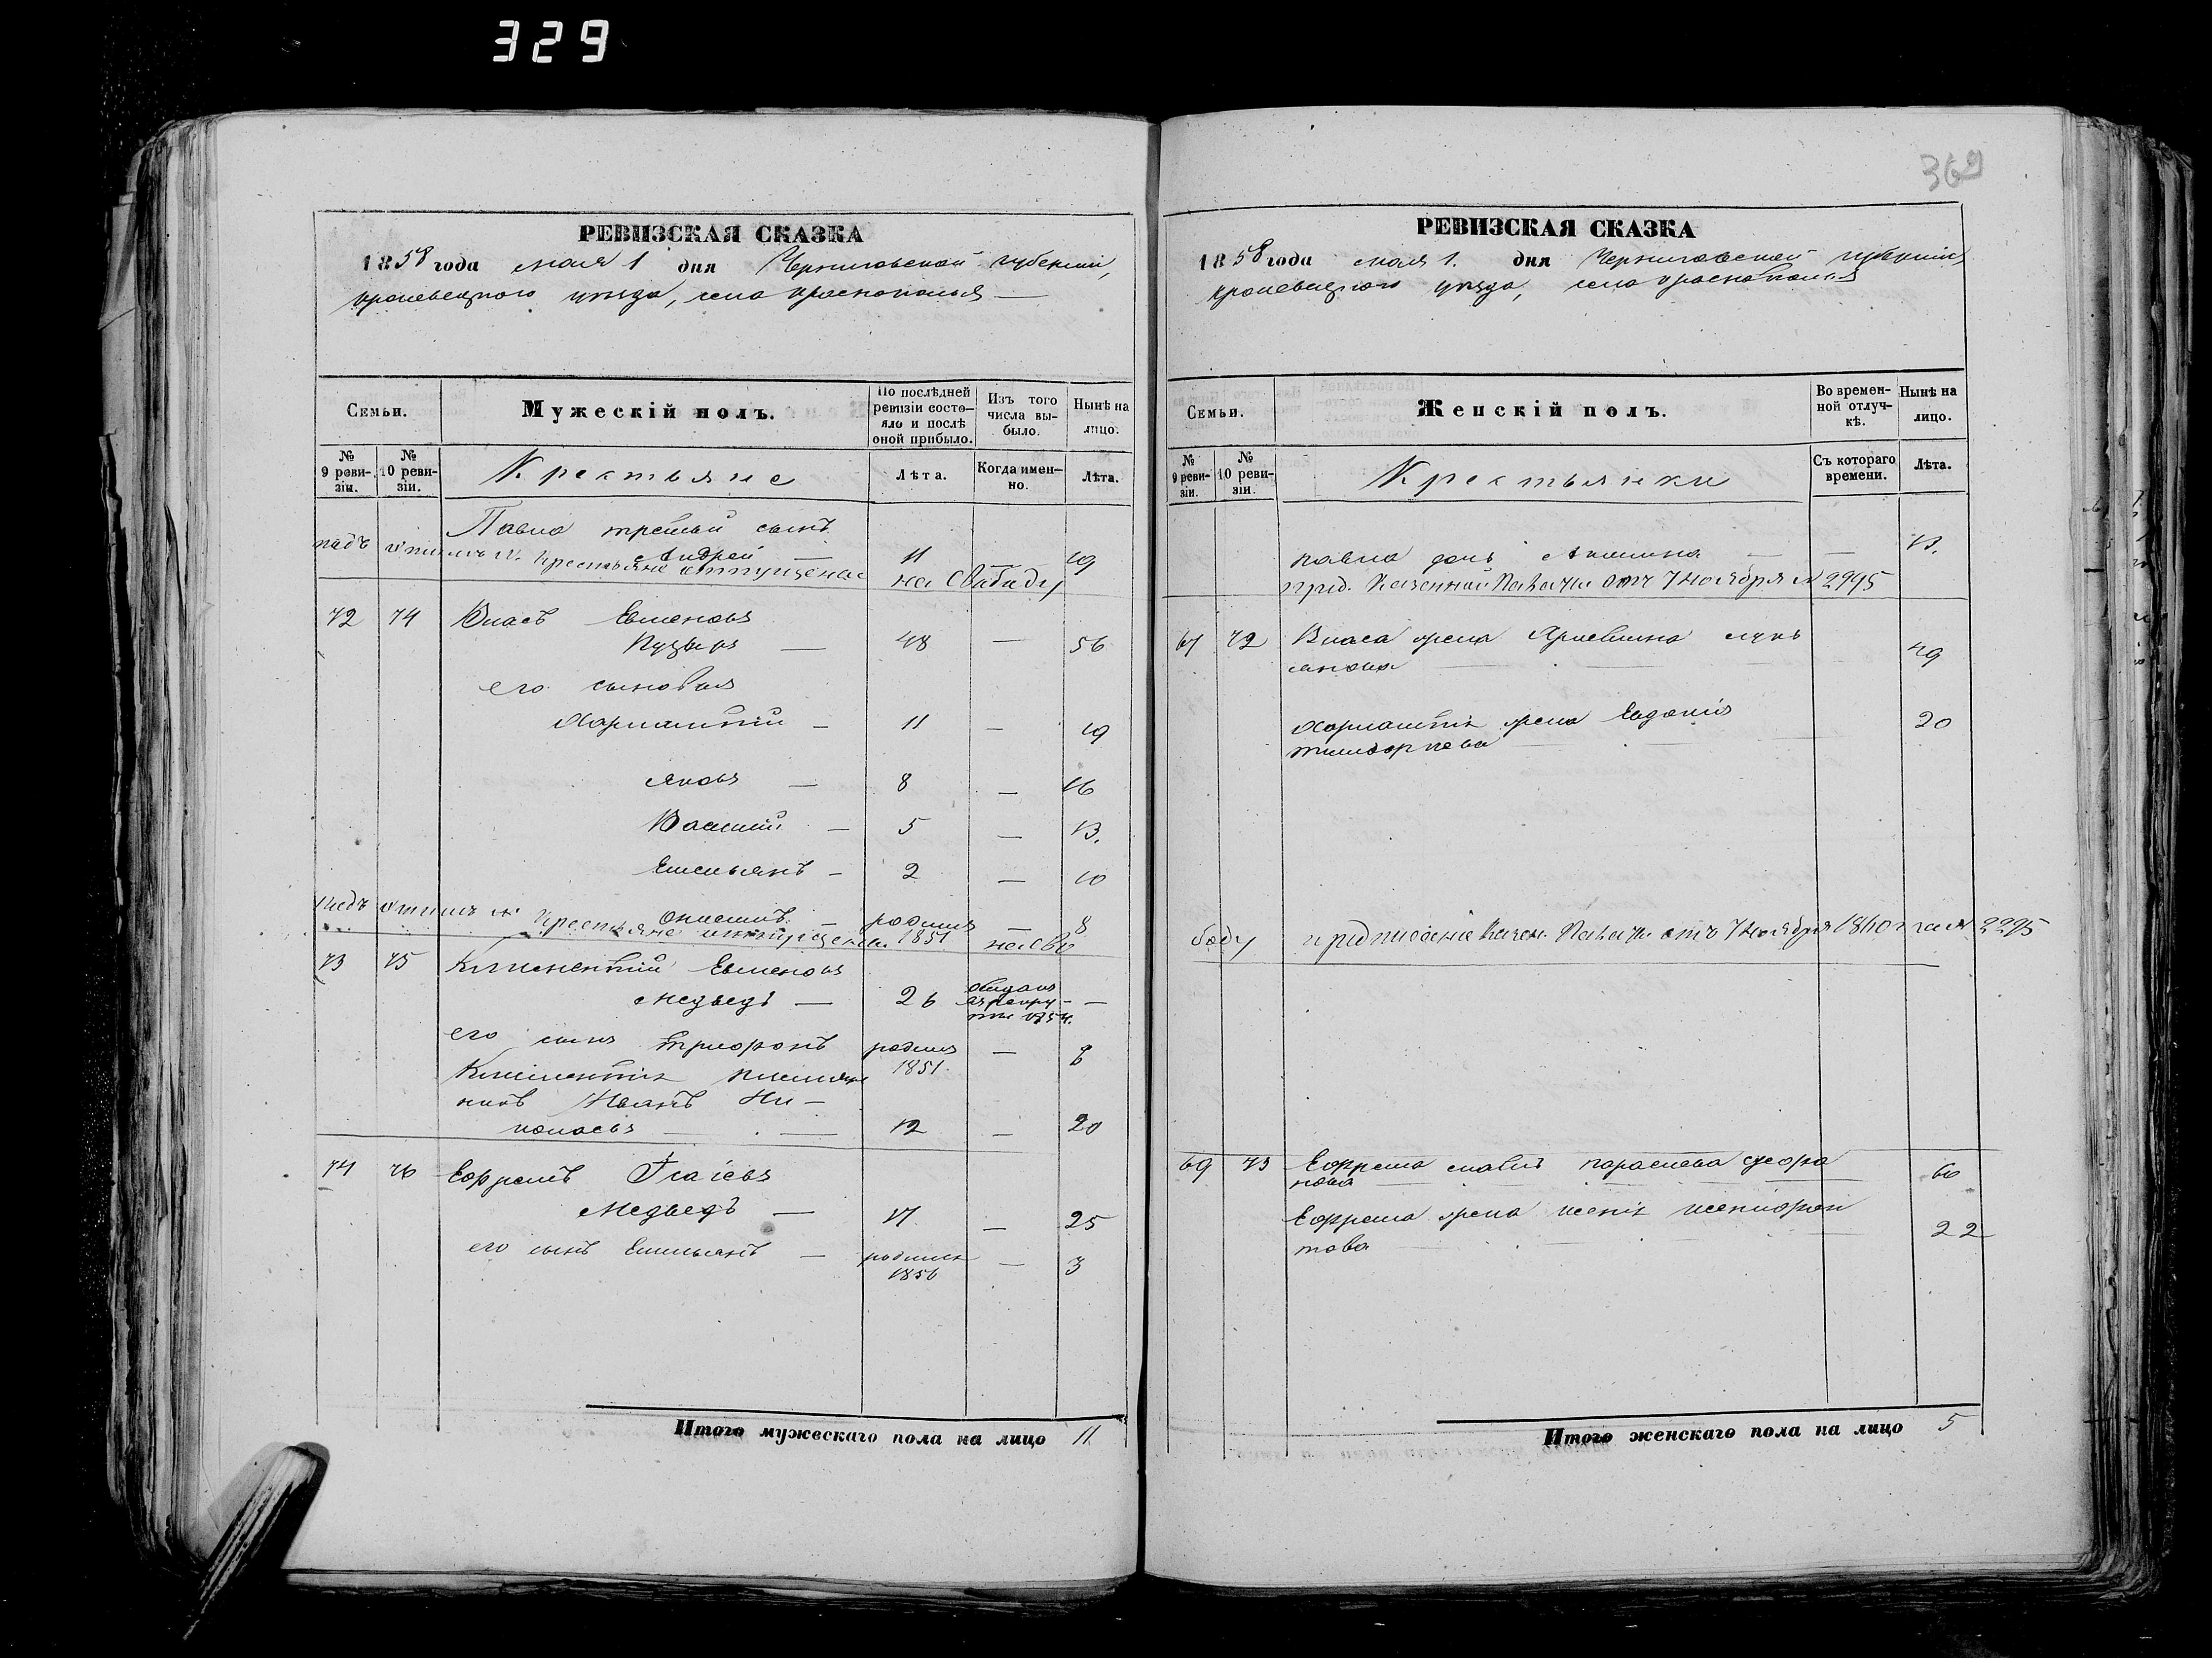 329
369
РЕВИЗСКАЯ СКАЗКА
1858 года мая 1 дня Черниговской губерніи,
кролевецкого уѣзда, села краснополья —
Семьи.
Мужескій полъ.
По послѣдней ревизіи состояло и послѣ оной прибыло.
Изъ того числа выбыло.
Нынѣ на лицо.
№ 9 ревизіи.
№ 10 ревизіи.
Крестьяне
Лѣта.
Когда именно.
Лѣта.
Павла третьй сынъ
Андрей — 11 — 19
подъ этимъ № Крестьяне отпущены на Свободу
72 74 Власъ Евменовъ
Пузырь — 48 — 56
его сыновья
Харлампій — 11 — 19
Яковъ — 8 — 16
Василій — 5 — 13.
Емельянъ — 2 — 10
Онисимъ — родился 1851 — 8
подъ этимъ № Крестьяне отпущены на Сво
73 75 Климентій Евменовъ
Медведь — 26 отданъ въ рекруты 1854. —
его сынъ Трифонъ родился 1851. — 8
Климентія племян
никъ Иванъ Ни—
колаевъ — 12 — 20
74 76 Ефремъ Ісаіевъ
Медведь — 17 — 25
его сынъ Емельянъ — родился 1856 — 3
Итого мужескаго пола на лицо 11
РЕВИЗСКАЯ СКАЗКА
1858 года мая 1. дня Черниговской губерніи
кролевецкого уѣзда, села краснополья
Семьи.
Женскій полъ.
Во временной отлучкѣ.
Нынѣ на лицо.
№ 9 ревизіи.
№ 10 ревизіи.
Крестьянки
Съ котораго времени.
Лѣта.
павла дочь Акилина — — 13.
пред. Казенной Палаты отъ 7 ноября № 2995
67 72 Власа жена лукь
янова — 49
Харлампія жена Евдокія
тимофеева — 20
боду предписаніе Казен. Палаты отъ 7 ноября 1860 года № 2295
69 73 Ефрема мать параскева
нова — 60
Ефрема жена ксенія ксенофон
това — 22
Итого женскаго пола на лицо 5